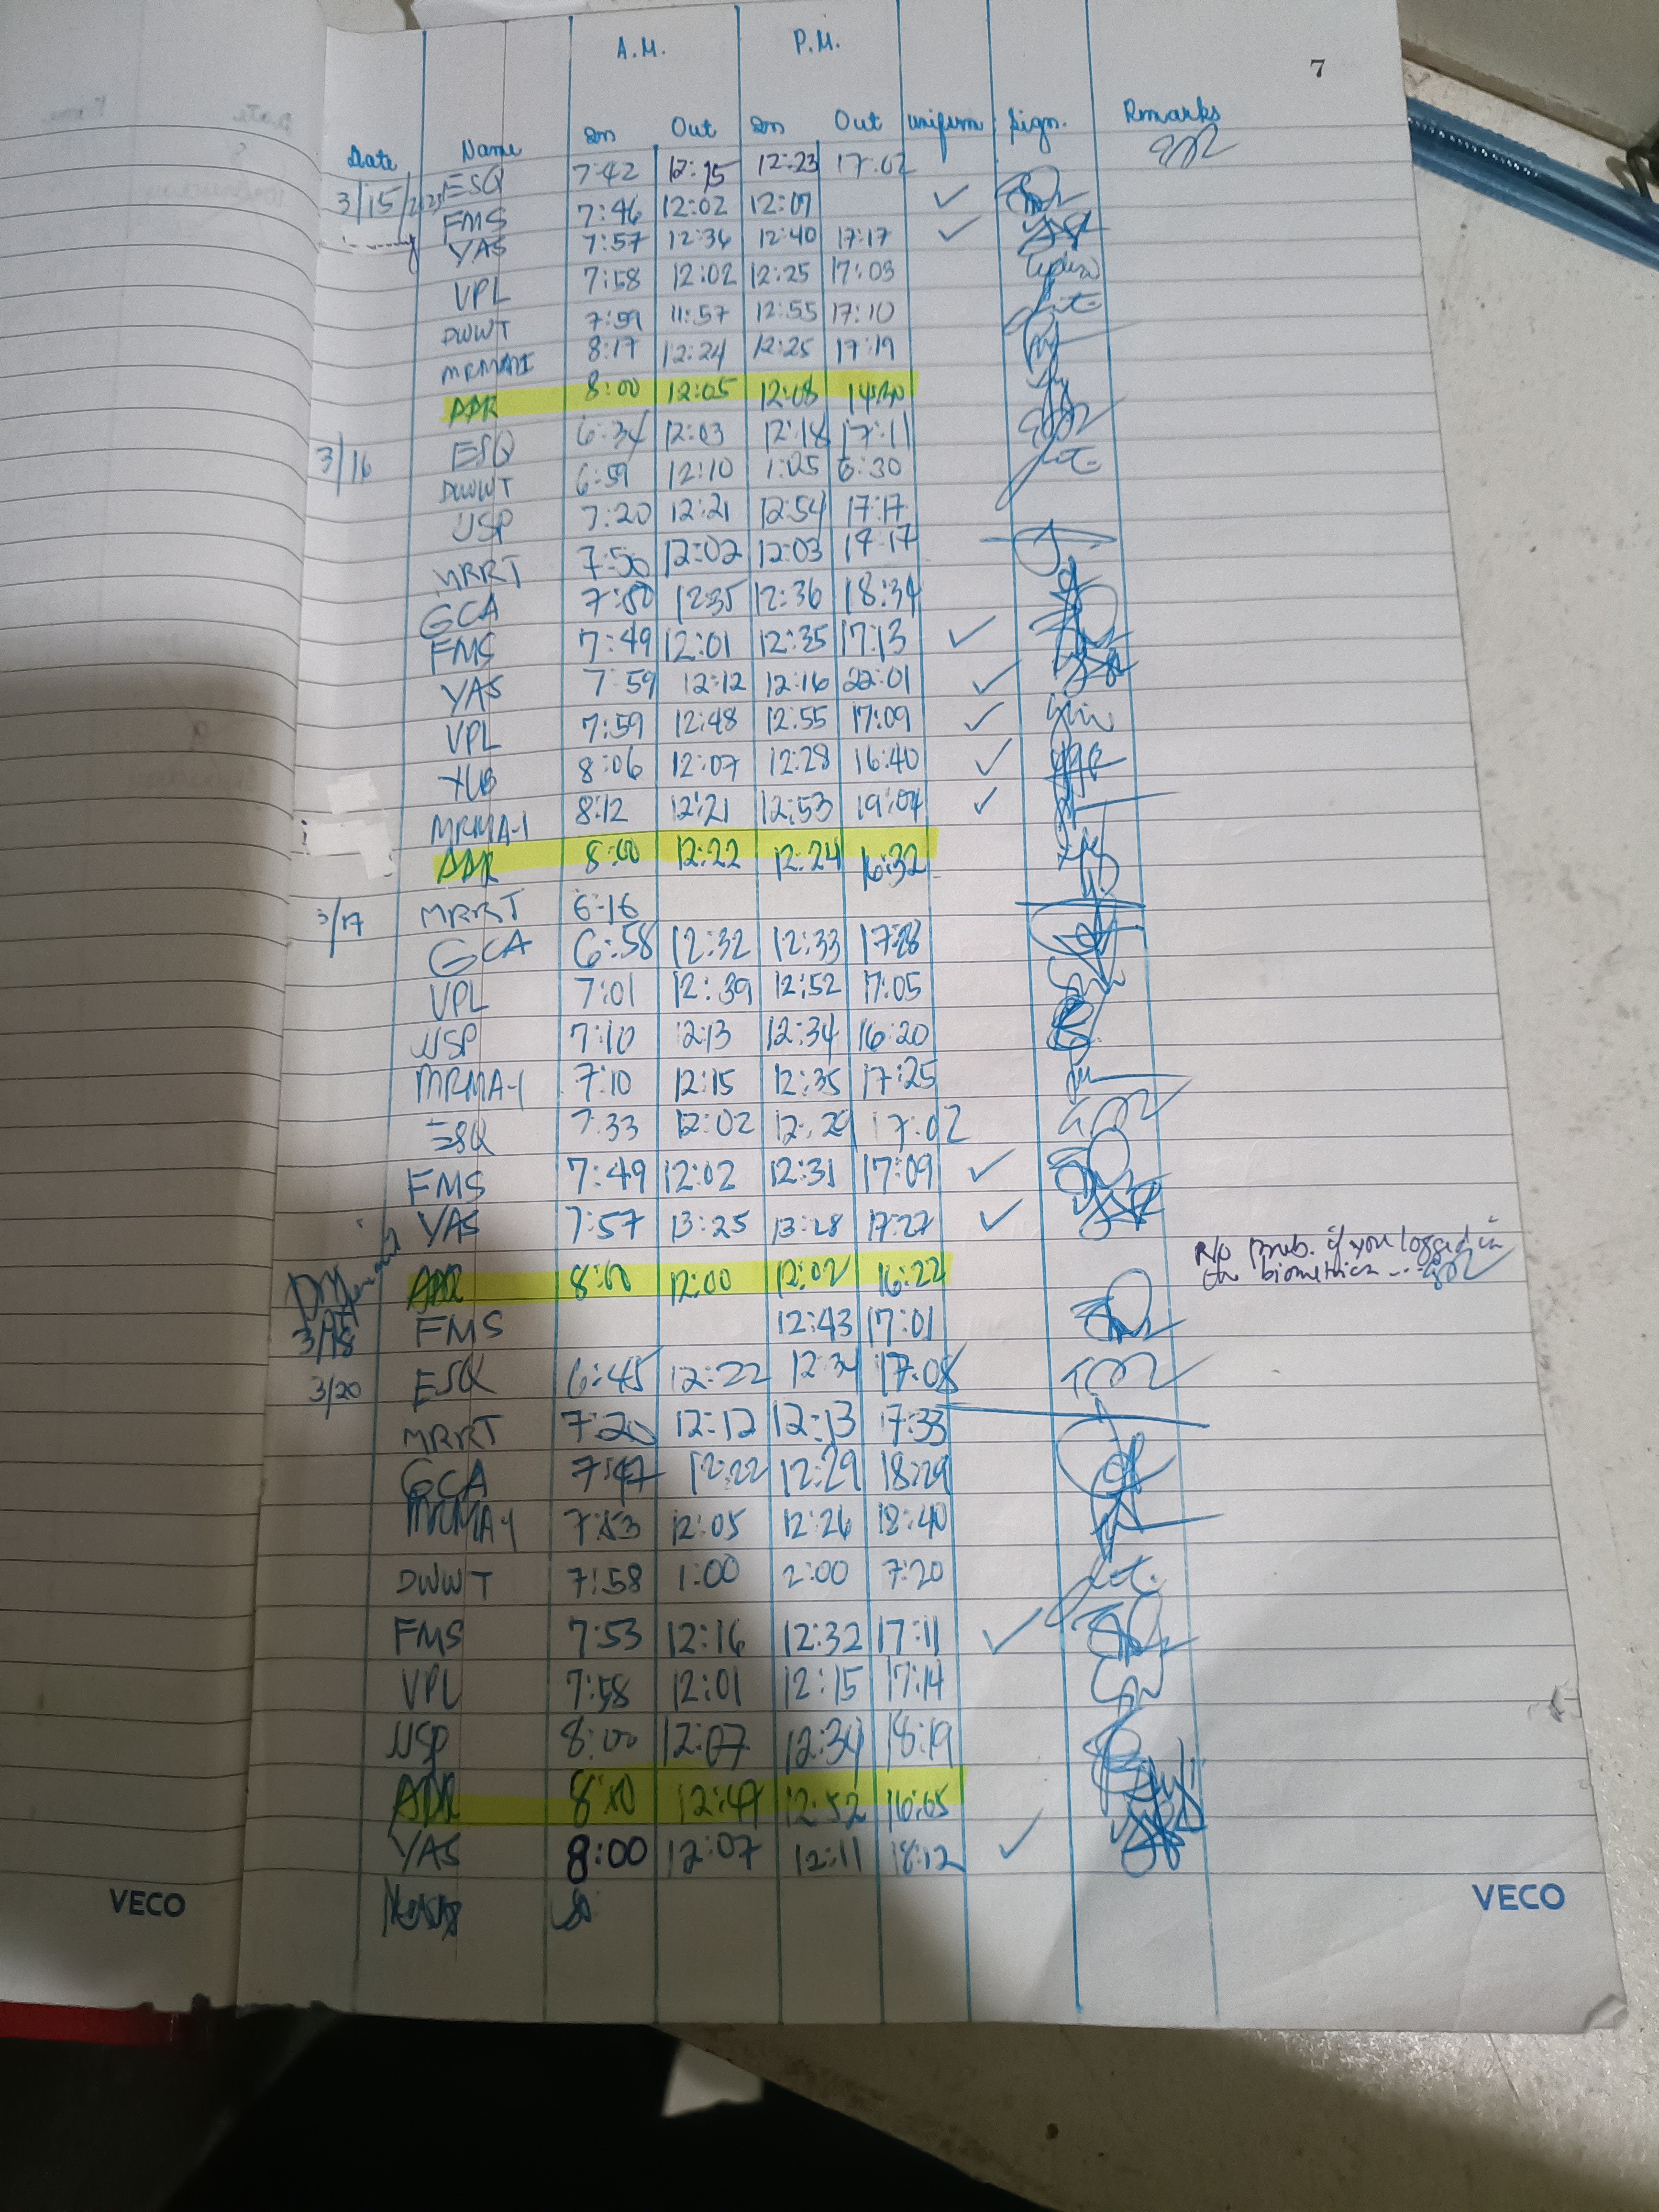 7
A.M. P.M.
Date Name In Out In Out Uniform Sign. Remarks
3/15/2023 ESQ 7:42 12:15 12:23 17:02
FMS 7:46 12:02 12:07
YAS 7:57 12:36 12:40 17:17
VPL 7:58 12:02 12:25 17:03
DWWT 7:59 11:57 12:55 17:10
8:17 12:24 12:25 17:19
8:00 12:05 12:08
3/16 ESQ 6:34 12:03 12:18 17:11
DWWT 6:59 12:10 1:05 6:30
USP 7:20 12:21 12:54 17:17
MRRT 7:50 12:02 12:03 17:17
GCA 12:35 12:36 18:34
FMS 7:49 12:01 12:35 17:13
YAS 7:59 12:12 12:16 22:01
VPL 7:59 12:48 12:55 17:09
8:06 12:07 12:28 16:40
MRMA-1 8:12 12:21 12:53 19:04
8:00 12:22 12:24 16:32
3/17 MRRT 6:16
GCA 6:58 12:32 12:33 17:28
VPL 7:01 12:39 12:52 17:05
USP 7:10 12:13 12:34 16:20
MRMA-1 7:10 12:15 12:35 17:25
ESQ 7:33 12:02 12:29 17:02
FMS 7:49 12:02 12:31 17:09
YAS 7:57 13:25 13:28 17:27
8:00 12:00 12:02 16:22 No prob. if you logged in
the biometrics ...
3/18 FMS 12:43 17:01
3/20 ESQ 6:45 12:22 12:34 17:08
MRRT 7:20 12:12 12:13 17:33
GCA 7:47 12:22 12:29 18:29
MRMA-1 7:53 12:05 12:26 18:40
DWWT 7:58 1:00 2:00 7:20
FMS 7:53 12:16 12:32 17:11
VPL 7:58 12:01 12:15 17:14
USP 8:00 12:07 12:34 18:19
12:52 16:05
YAS 8:00 12:07 12:11 18:12
VECO VECO